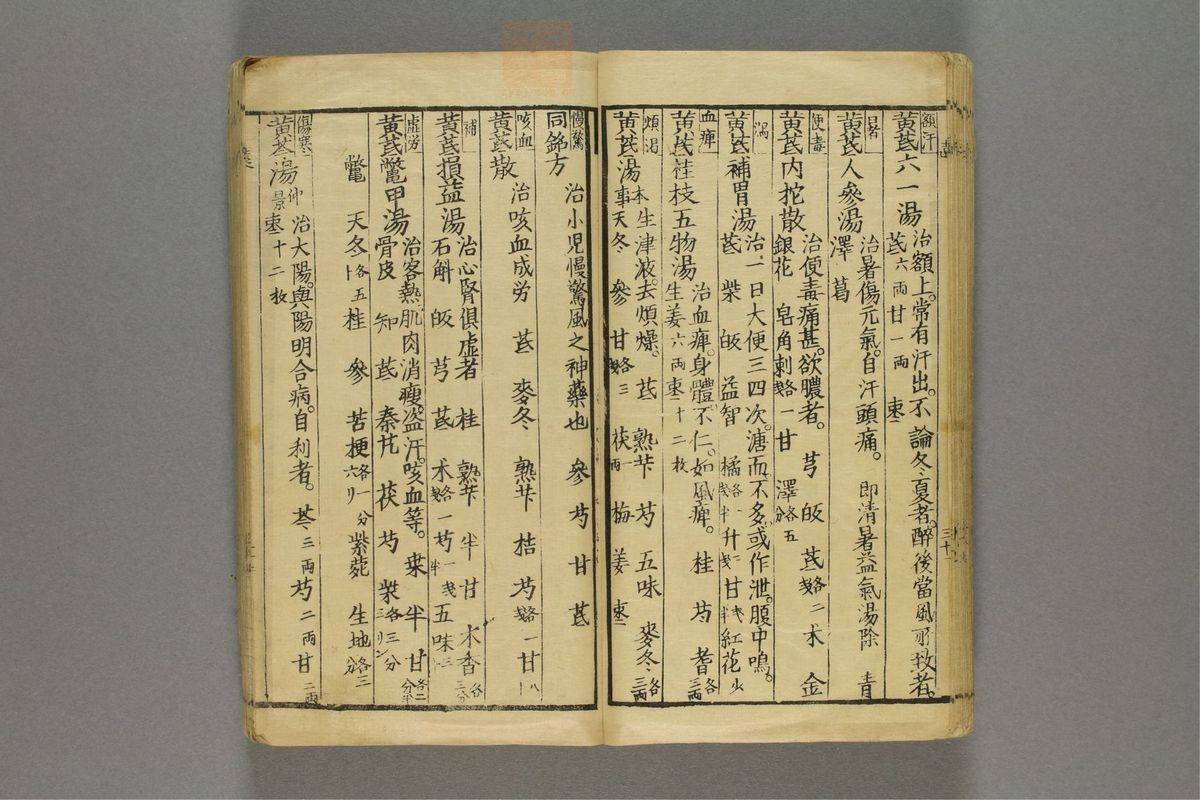 額汗
黄芪六一湯 治額上常有汗出。不論冬夏者。醉後當風所致者。
芪六兩 甘一兩 棗
暑
黄芪人參湯 治暑傷元氣。自汗頭痛。 即清暑益氣湯除 青
澤 葛
便毒
黄芪内托散 治便毒痛甚。欲膿者。 芎 皈 芪各二戔 朮 金
銀花 皂角刺各戔一 甘 澤各五分
瀉
黄芪補胃湯 治一日大便三四次。溏而不多。或作泄。腹中鳴。
芪 柴 皈 益智 橘各半戔 升二戔 甘半戔 紅花少
血痺
黄芪桂枝五物湯 治血痺。身體不仁。如風痺。 桂 芍 耆各三兩
生姜六兩 棗十二枚
煩渇
黄芪湯本事 生津液。去煩燥。 芪 熟芐 芍 五味 麥冬各三兩
天冬 參 甘各三戔 茯一兩 梅 姜 棗
慢驚
同錦方 治小児慢驚風之神藥也 參 芍 甘 芪
咳血
黄芪散 治咳血成労 芪 麥冬 熟芐 桔 芍各戔一 甘八卜
補
黄芪損益湯 治心腎俱虚者 桂 熟芐 半 甘 木香各三分
石斛 皈 芎 芪 朮各戔一 芍一戔半 五味二
虚労
黄芪鼈甲湯 治客熱肌肉消瘦。盗汗。咳血等。 桒 半 甘各二分半
骨皮 知 芪 秦艽 茯 芍 柴各三分三リン
鼈 天冬各五卜 桂 參 苦梗各一分六リ 紫菀 生地各三分
傷寒
黄芩湯仲景 治大陽。與陽明合病。自利者。 芩三兩 芍二兩 甘二兩
棗十二枚
三十